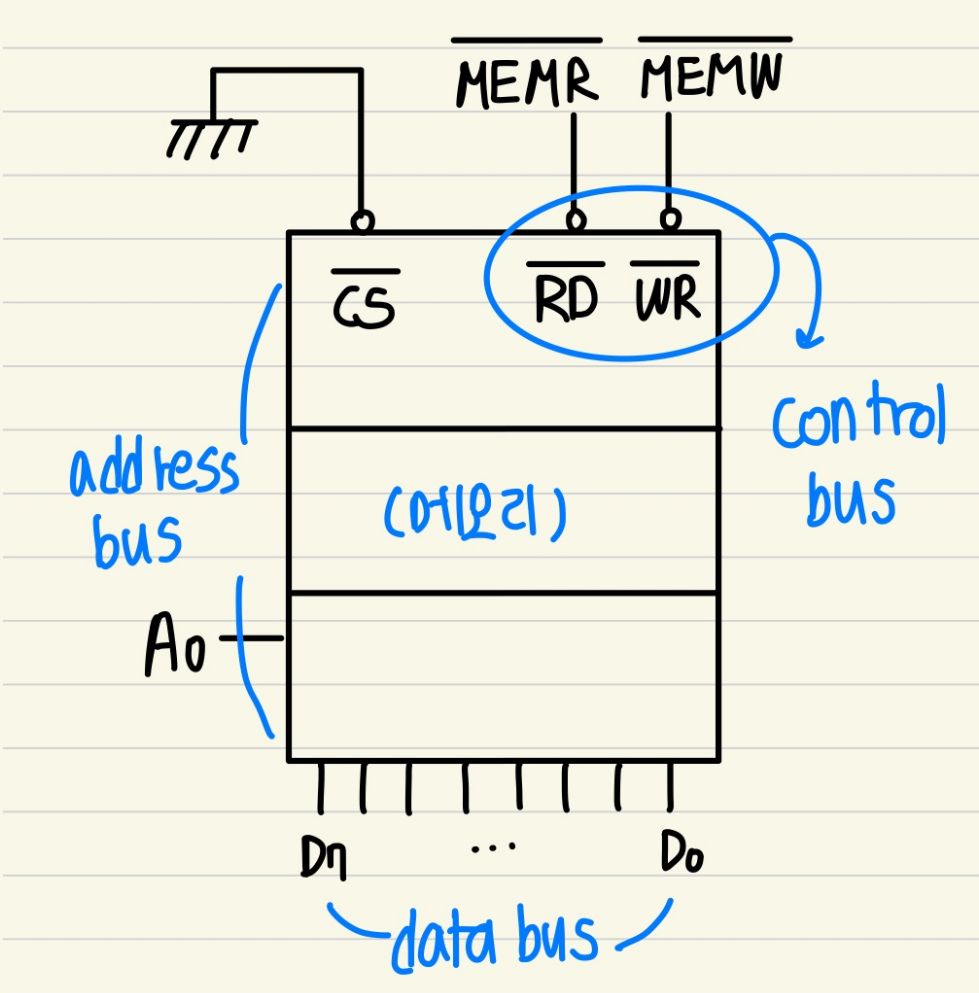 M̅E̅M̅R̅ M̅E̅M̅W̅
C̅S̅ R̅D̅ W̅R̅
control
bus
address
bus
(메모리)
A0
Dn ... D0
data bus